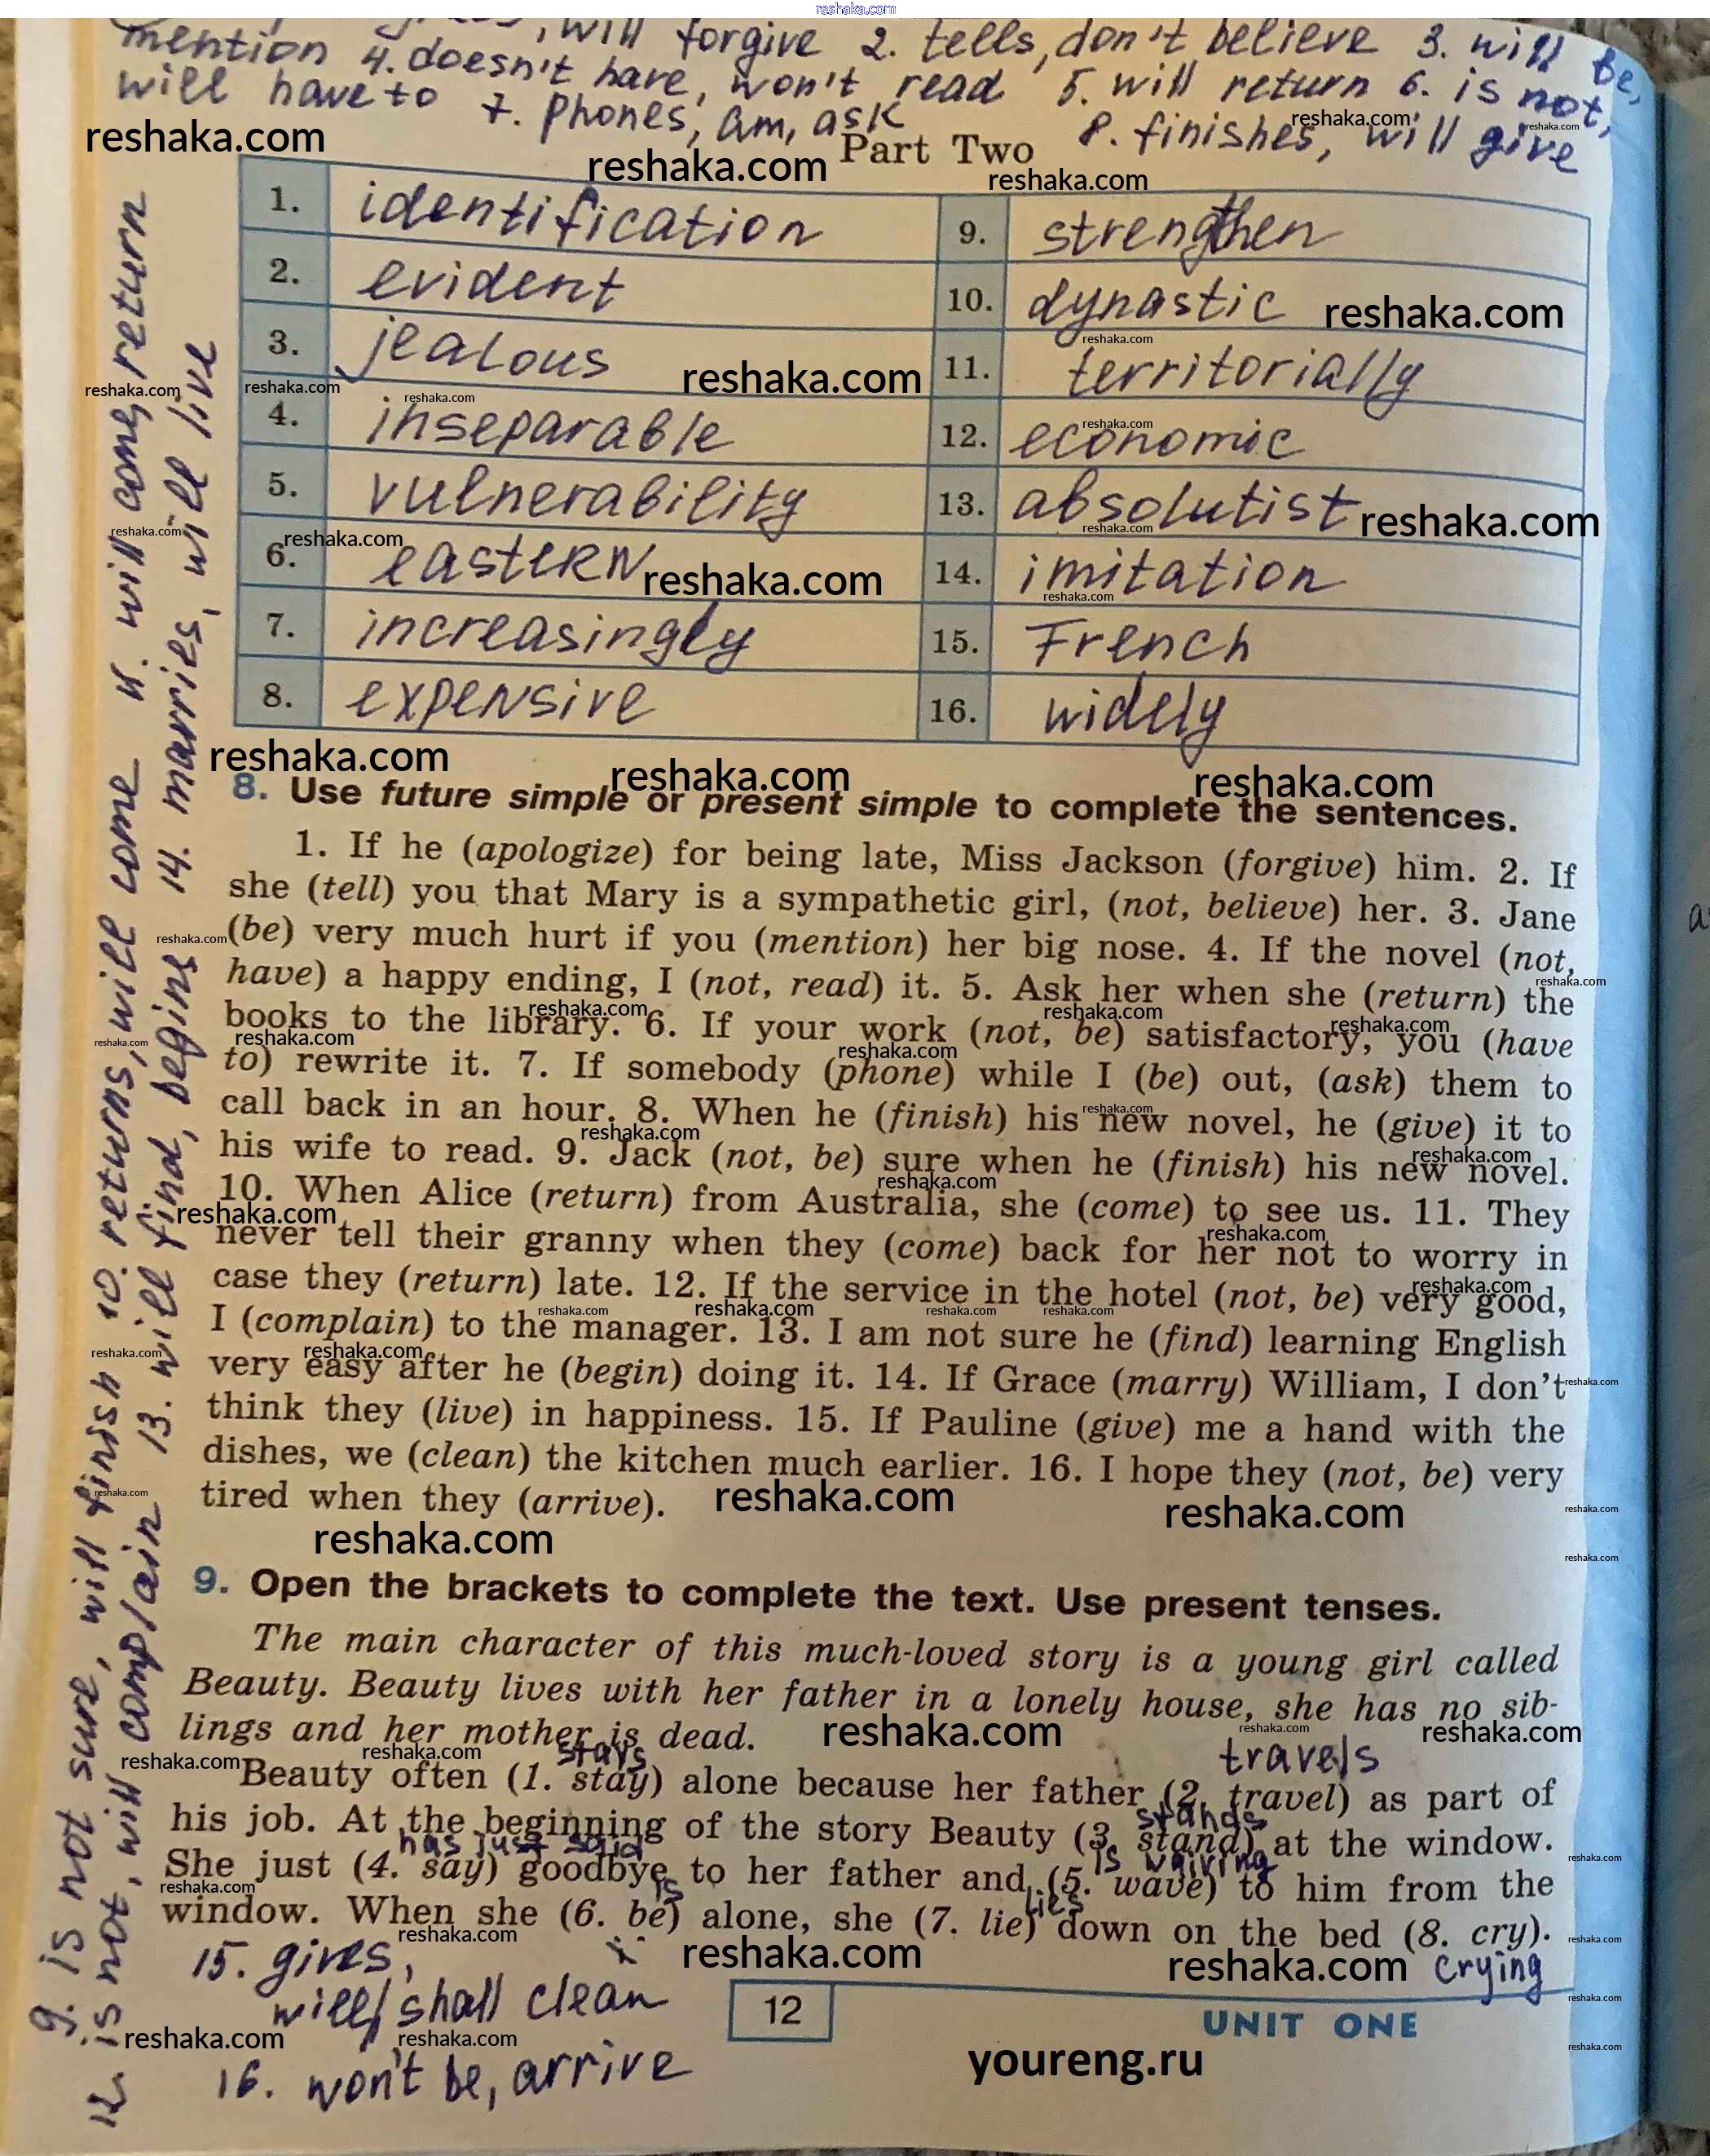 reshaka.com
will forgive 2. tells, don't believe 3. will be,
mention 4. doesn't have, won't read 5. will return 6. is not,
will have to 7. phones, am, ask 8. finishes, will give
Part Two
1. identification
2. evident
3. jealous
4. inseparable
5. vulnerability
6. eastern
7. increasingly
8. expensive
9. strengthen
10. dynastic
11. territorially
12. economic
13. absolutist
14. imitation
15. French
16. widely
8. Use future simple or present simple to complete the sentences.
1. If he (apologize) for being late, Miss Jackson (forgive) him. 2. If
she (tell) you that Mary is a sympathetic girl, (not, believe) her. 3. Jane
(be) very much hurt if you (mention) her big nose. 4. If the novel (not,
have) a happy ending, I (not, read) it. 5. Ask her when she (return) the
books to the library. 6. If your work (not, be) satisfactory, you (have
to) rewrite it. 7. If somebody (phone) while I (be) out, (ask) them to
call back in an hour. 8. When he (finish) his new novel, he (give) it to
his wife to read. 9. Jack (not, be) sure when he (finish) his new novel.
10. When Alice (return) from Australia, she (come) to see us. 11. They
never tell their granny when they (come) back for her not to worry in
case they (return) late. 12. If the service in the hotel (not, be) very good,
I (complain) to the manager. 13. I am not sure he (find) learning English
very easy after he (begin) doing it. 14. If Grace (marry) William, I don't
think they (live) in happiness. 15. If Pauline (give) me a hand with the
dishes, we (clean) the kitchen much earlier. 16. I hope they (not, be) very
tired when they (arrive).
9. is not sure, will finish 10. returns, will come 11. will come, return
12. is not, will complain 13. will find, begins 14. marries, will live
9. Open the brackets to complete the text. Use present tenses.
The main character of this much-loved story is a young girl called
Beauty. Beauty lives with her father in a lonely house, she has no sib-
lings and her mother is dead.
stays travels
Beauty often (1. stay) alone because her father (2. travel) as part of
stands
his job. At the beginning of the story Beauty (3. stand) at the window.
has just said is waiving
She just (4. say) goodbye to her father and (5. wave) to him from the
is lies
window. When she (6. be) alone, she (7. lie) down on the bed (8. cry).
crying
15. gives,
will/shall clean
16. won't be, arrive
12
UNIT ONE
youreng.ru